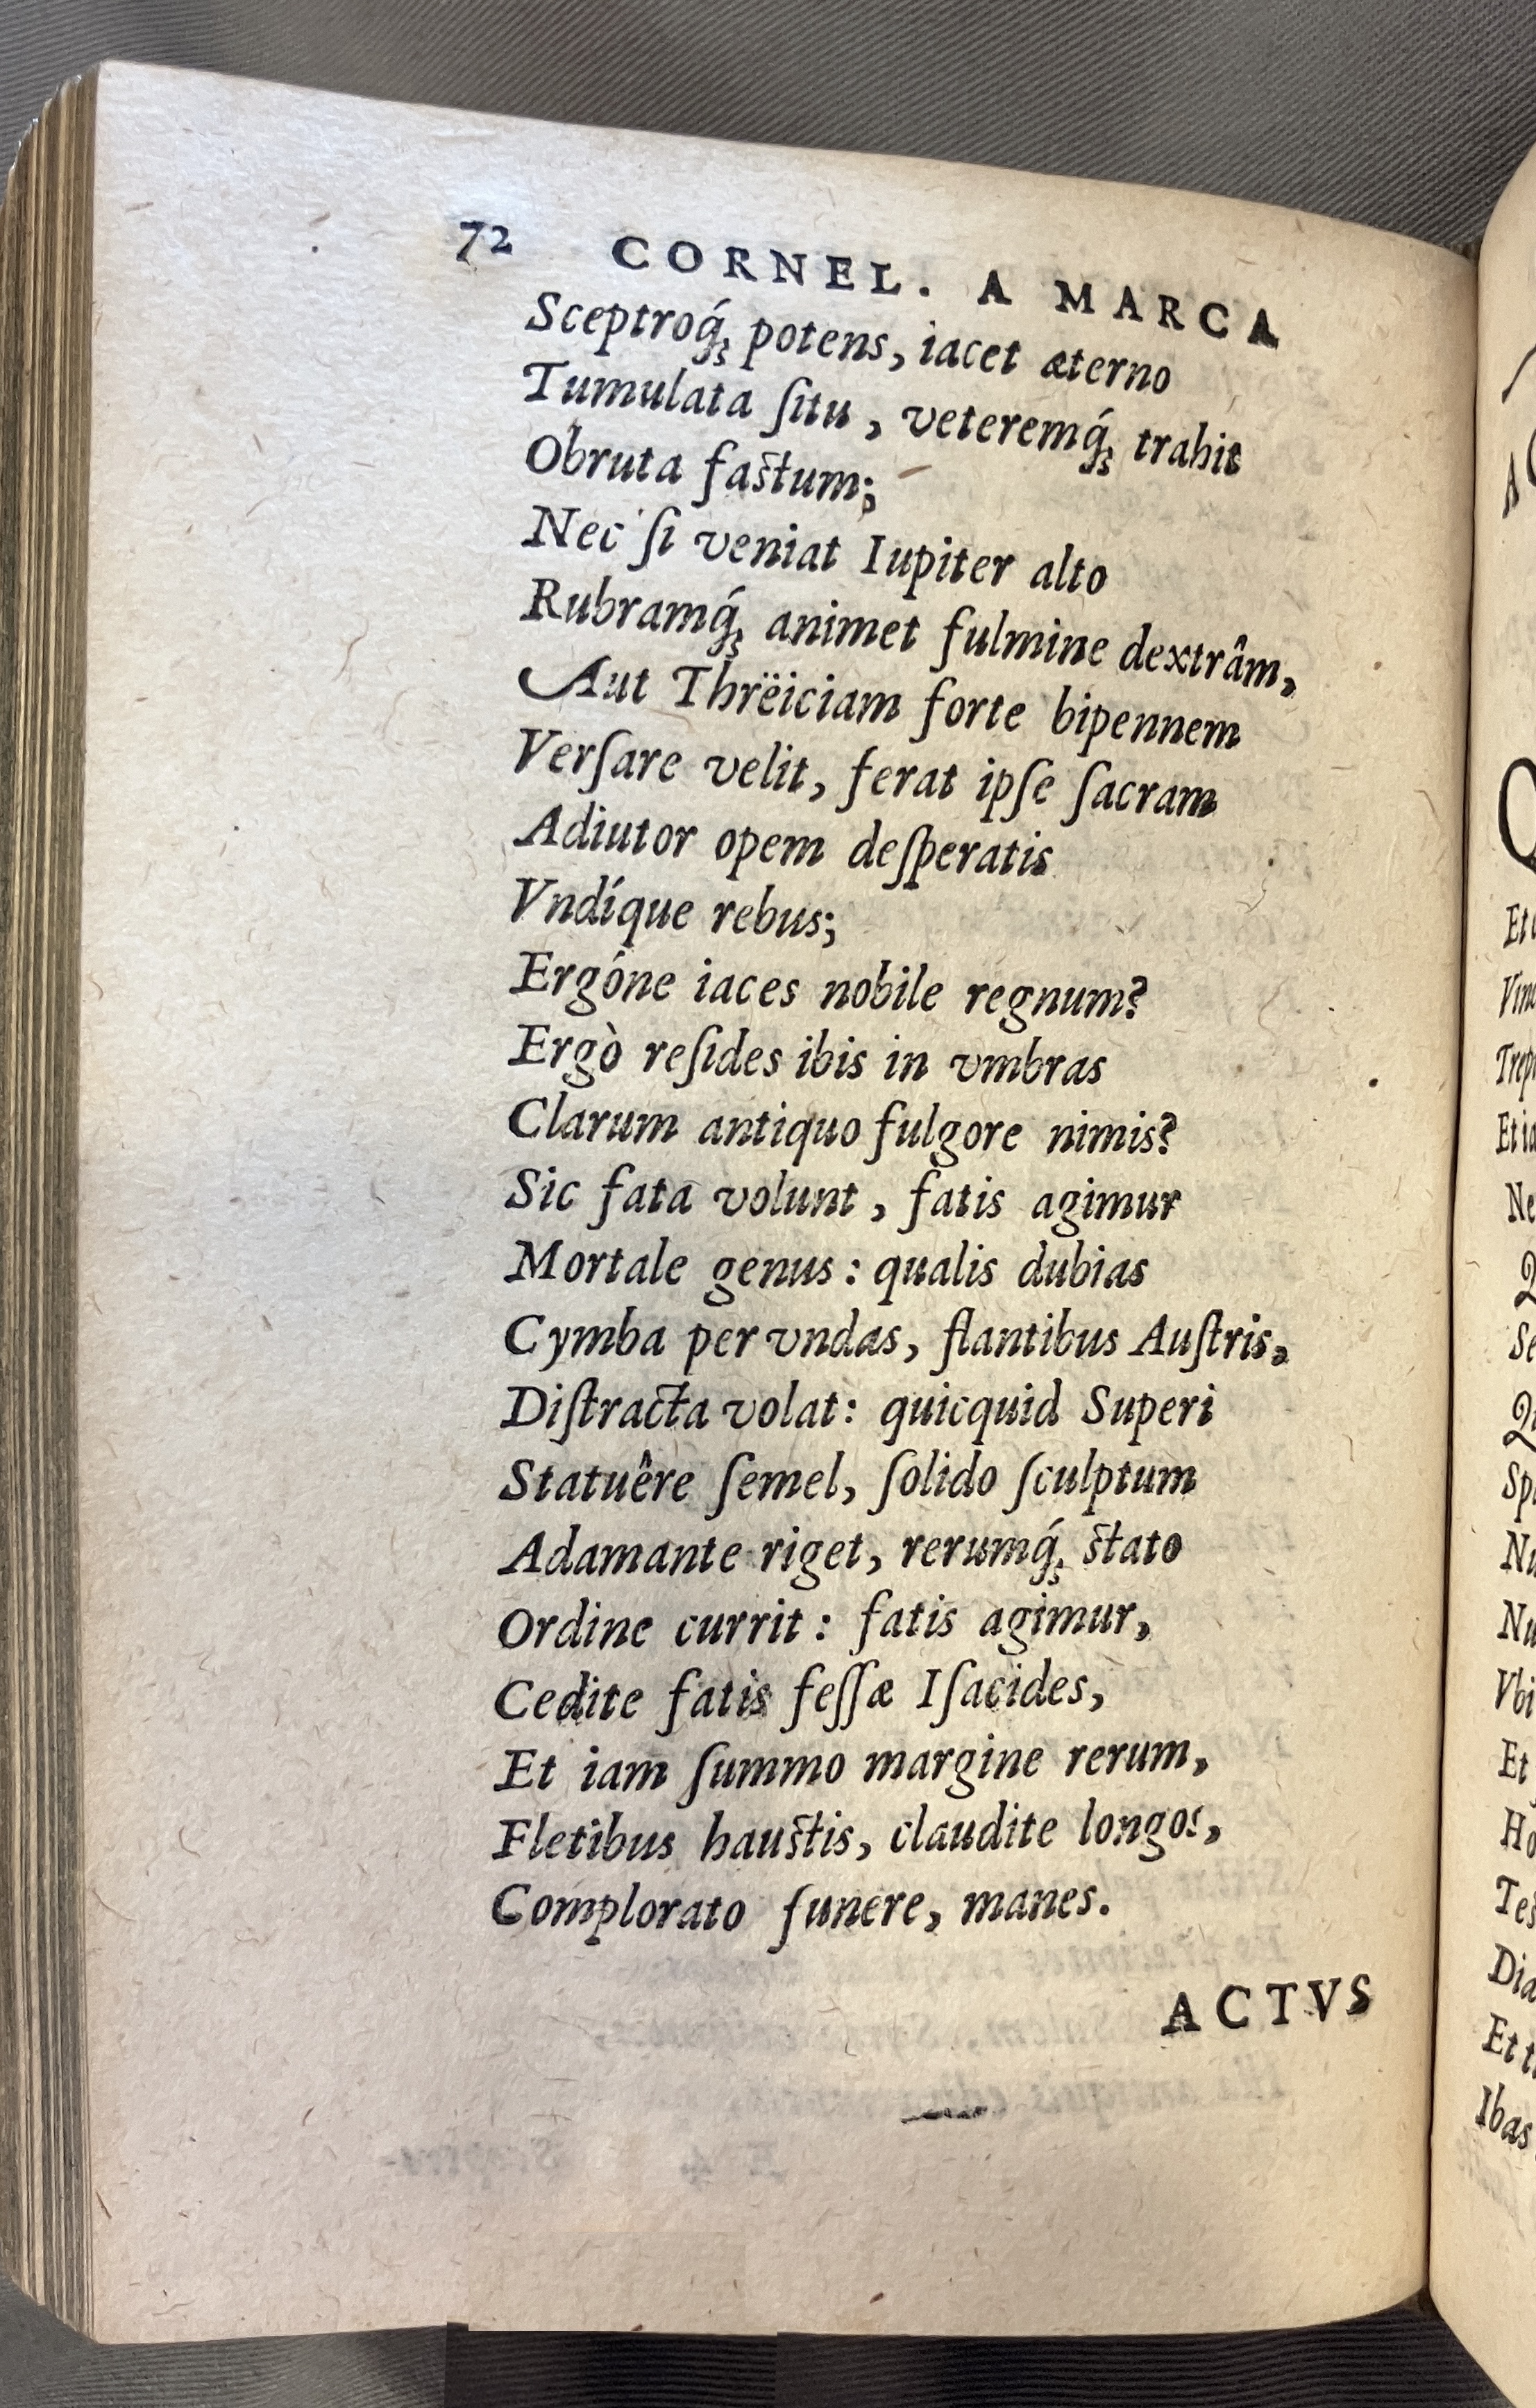 72 CORNEL. A MARCA
Sceptroq́ꝫ potens, iacet æterno
Tumulata ſitu, veteremq́ꝫ trahit
Obruta faſtum;
Nec ſi veniat Iupiter alto
Rubramq́ꝫ animet fulmine dextrâm,
Aut Thrëiciam forte bipennem
Verſare velit, ferat ipſe ſacram
Adiutor opem deſperatis
Vndíque rebus;
Ergóne iaces nobile regnum?
Ergò reſides ibis in vmbras
Clarum antiquo fulgore nimis?
Sic fata volunt, fatis agimur
Mortale genus: qualis dubias
Cymba per vndas, flantibus Auſtris,
Diſtracta volat: quicquid Superi
Statuêre ſemel, ſolido ſculptum
Adamante riget, rerumq́ꝫ ſtato
Ordine currit: fatis agimur,
Cedite fatis feſſæ Iſacides,
Et iam ſummo margine rerum,
Fletibus hauſtis, claudite longos,
Complorato funere, manes.
ACTVS